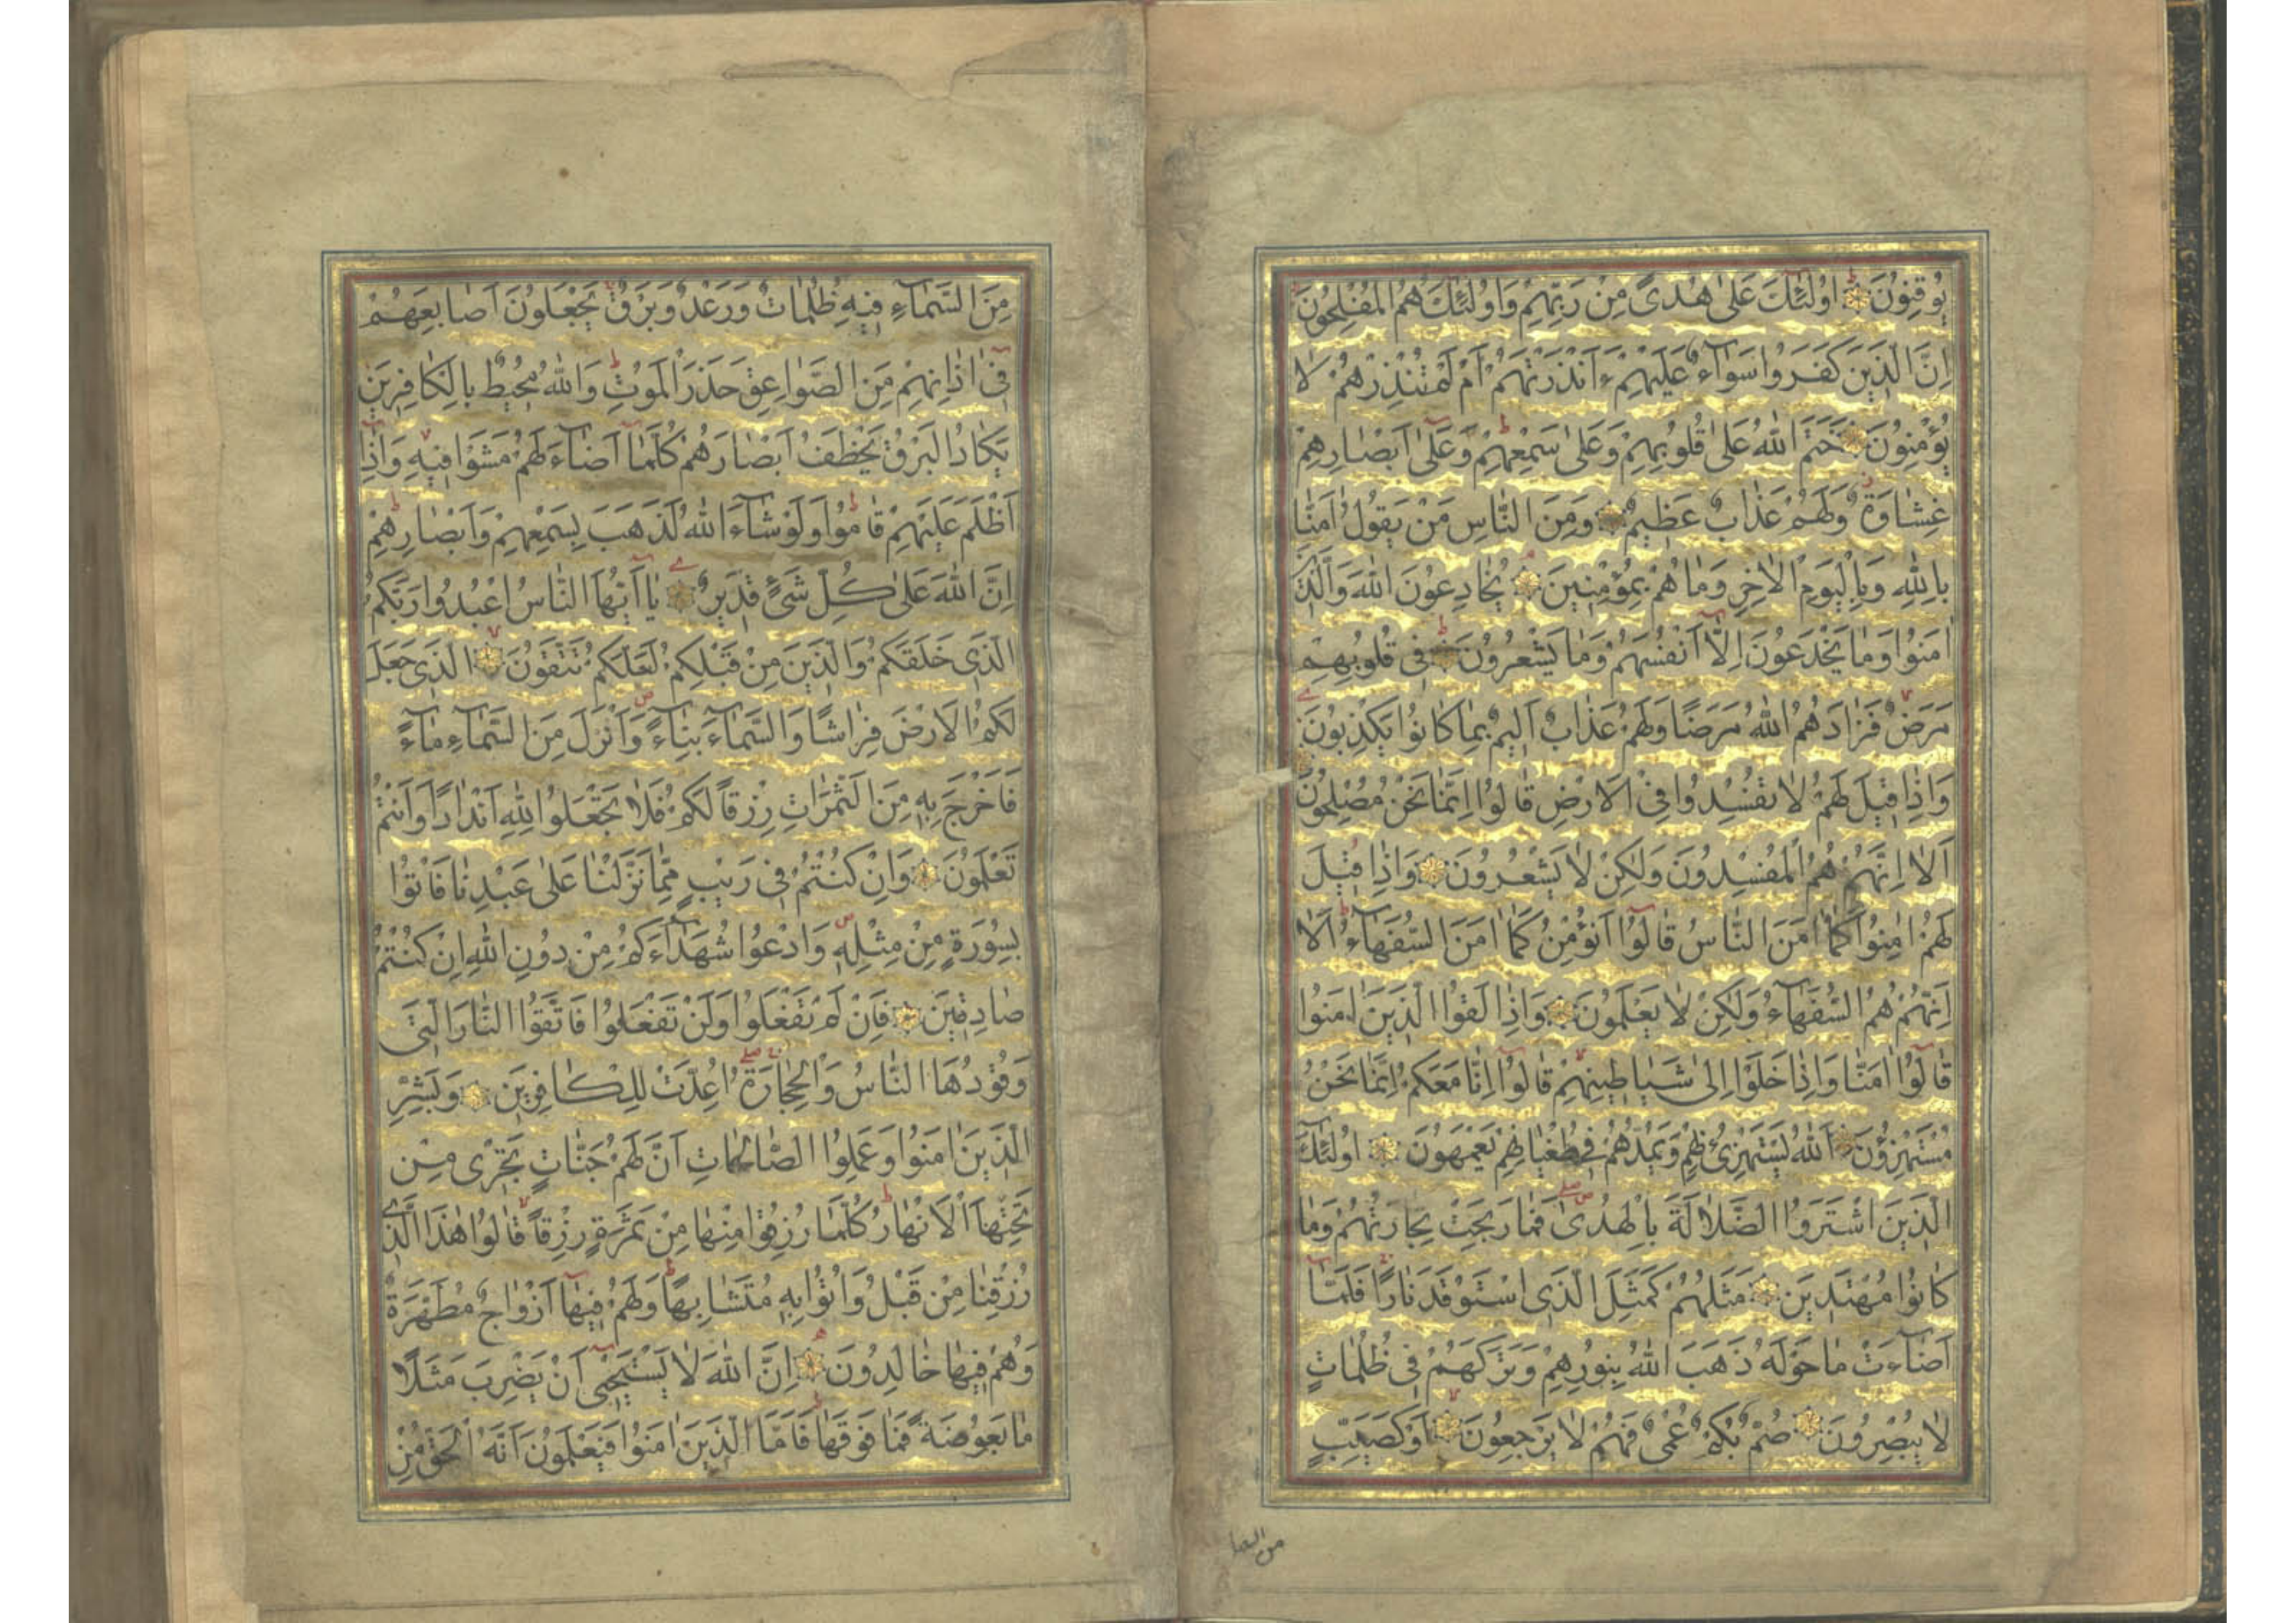 يُوقِنُونَ اُولٰئِكَ عَلٰى هُدًى مِنْ رَبِّهِمْ وَاُولٰئِكَ هُمُ الْمُفْلِحُونَ
اِنَّ الَّذِينَ كَفَرُوا سَوَآءٌ عَلَيْهِمْ ءَاَنْذَرْتَهُمْ اَمْ لَمْ تُنْذِرْهُمْ لَا
يُؤْمِنُونَ خَتَمَ اللّٰهُ عَلٰى قُلُوبِهِمْ وَعَلٰى سَمْعِهِمْ وَعَلٰٓى اَبْصَارِهِمْ
غِشَاوَةٌ وَلَهُمْ عَذَابٌ عَظِيمٌ وَمِنَ النَّاسِ مَنْ يَقُولُ اٰمَنَّا
بِاللّٰهِ وَبِالْيَوْمِ الْاٰخِرِ وَمَا هُمْ بِمُؤْمِنِينَ يُخَادِعُونَ اللّٰهَ وَالَّذِينَ
اٰمَنُوا وَمَا يَخْدَعُونَ اِلَّٓا اَنْفُسَهُمْ وَمَا يَشْعُرُونَ فِى قُلُوبِهِمْ
مَرَضٌ فَزَادَهُمُ اللّٰهُ مَرَضًا وَلَهُمْ عَذَابٌ اَلِيمٌ بِمَا كَانُوا يَكْذِبُونَ
وَاِذَا قِيلَ لَهُمْ لَا تُفْسِدُوا فِى الْاَرْضِ قَالُوا اِنَّمَا نَحْنُ مُصْلِحُونَ
اَلَا اِنَّهُمْ هُمُ الْمُفْسِدُونَ وَلٰكِنْ لَا يَشْعُرُونَ وَاِذَا قِيلَ
لَهُمْ اٰمِنُوا كَمَا اٰمَنَ النَّاسُ قَالُوٓا اَنُؤْمِنُ كَمَا اٰمَنَ السُّفَهَآءُ اَلَا
اِنَّهُمْ هُمُ السُّفَهَآءُ وَلٰكِنْ لَا يَعْلَمُونَ وَاِذَا لَقُوا الَّذِينَ اٰمَنُوا
قَالُوا اٰمَنَّا وَاِذَا خَلَوْا اِلٰى شَيَاطِينِهِمْ قَالُوٓا اِنَّا مَعَكُمْ اِنَّمَا نَحْنُ
مُسْتَهْزِؤُنَ اَللّٰهُ يَسْتَهْزِئُ بِهِمْ وَيَمُدُّهُمْ فِى طُغْيَانِهِمْ يَعْمَهُونَ اُولٰئِكَ
الَّذِينَ اشْتَرَوُا الضَّلَالَةَ بِالْهُدٰى فَمَا رَبِحَتْ تِجَارَتُهُمْ وَمَا
كَانُوا مُهْتَدِينَ مَثَلُهُمْ كَمَثَلِ الَّذِى اسْتَوْقَدَ نَارًا فَلَمَّٓا
اَضَآءَتْ مَا حَوْلَهُ ذَهَبَ اللّٰهُ بِنُورِهِمْ وَتَرَكَهُمْ فِى ظُلُمَاتٍ
لَا يُبْصِرُونَ صُمٌّ بُكْمٌ عُمْىٌ فَهُمْ لَا يَرْجِعُونَ اَوْ كَصَيِّبٍ
من السما
مِنَ السَّمَآءِ فِيهِ ظُلُمَاتٌ وَرَعْدٌ وَبَرْقٌ يَجْعَلُونَ اَصَابِعَهُمْ
فِٓى اٰذَانِهِمْ مِنَ الصَّوَاعِقِ حَذَرَ الْمَوْتِ وَاللّٰهُ مُحِيطٌ بِالْكَافِرِينَ
يَكَادُ الْبَرْقُ يَخْطَفُ اَبْصَارَهُمْ كُلَّمَٓا اَضَآءَ لَهُمْ مَشَوْا فِيهِ وَاِذَٓا
اَظْلَمَ عَلَيْهِمْ قَامُوا وَلَوْ شَآءَ اللّٰهُ لَذَهَبَ بِسَمْعِهِمْ وَاَبْصَارِهِمْ
اِنَّ اللّٰهَ عَلٰى كُلِّ شَىْءٍ قَدِيرٌ يَٓا اَيُّهَا النَّاسُ اعْبُدُوا رَبَّكُمُ
الَّذِى خَلَقَكُمْ وَالَّذِينَ مِنْ قَبْلِكُمْ لَعَلَّكُمْ تَتَّقُونَ الَّذِى جَعَلَ
لَكُمُ الْاَرْضَ فِرَاشًا وَالسَّمَآءَ بِنَآءً وَاَنْزَلَ مِنَ السَّمَآءِ مَآءً
فَاَخْرَجَ بِهِ مِنَ الثَّمَرَاتِ رِزْقًا لَكُمْ فَلَا تَجْعَلُوا لِلّٰهِ اَنْدَادًا وَاَنْتُمْ
تَعْلَمُونَ وَاِنْ كُنْتُمْ فِى رَيْبٍ مِمَّا نَزَّلْنَا عَلٰى عَبْدِنَا فَاْتُوا
بِسُورَةٍ مِنْ مِثْلِهِ وَادْعُوا شُهَدَآءَكُمْ مِنْ دُونِ اللّٰهِ اِنْ كُنْتُمْ
صَادِقِينَ فَاِنْ لَمْ تَفْعَلُوا وَلَنْ تَفْعَلُوا فَاتَّقُوا النَّارَ الَّتِى
وَقُودُهَا النَّاسُ وَالْحِجَارَةُ اُعِدَّتْ لِلْكَافِرِينَ وَبَشِّرِ
الَّذِينَ اٰمَنُوا وَعَمِلُوا الصَّالِحَاتِ اَنَّ لَهُمْ جَنَّاتٍ تَجْرِى مِنْ
تَحْتِهَا الْاَنْهَارُ كُلَّمَا رُزِقُوا مِنْهَا مِنْ ثَمَرَةٍ رِزْقًا قَالُوا هٰذَا الَّذِى
رُزِقْنَا مِنْ قَبْلُ وَاُتُوا بِهِ مُتَشَابِهًا وَلَهُمْ فِيهَٓا اَزْوَاجٌ مُطَهَّرَةٌ
وَهُمْ فِيهَا خَالِدُونَ اِنَّ اللّٰهَ لَا يَسْتَحْيِٓى اَنْ يَضْرِبَ مَثَلًا
مَا بَعُوضَةً فَمَا فَوْقَهَا فَاَمَّا الَّذِينَ اٰمَنُوا فَيَعْلَمُونَ اَنَّهُ الْحَقُّ مِنْ